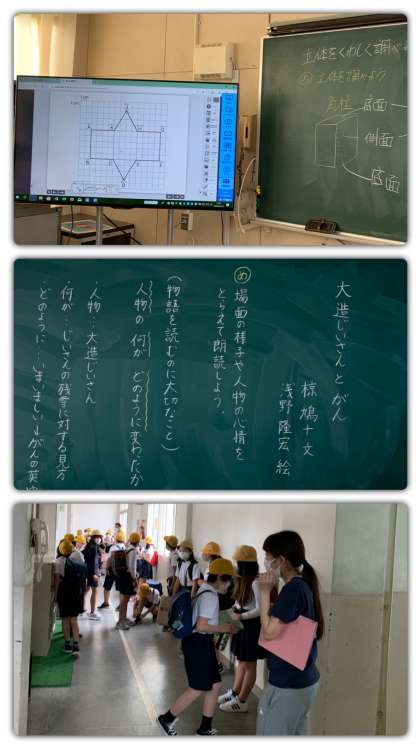 立体をくわしく調べ
め 立体を描かよう
角柱
底面
側面
底面
大造じいさんとがん
椋 鳩十 文
浅野 隆宏 絵
め 場面の様子や人物の心情を
とらえて朗読しよう。
(物語を読むのに大切なこと)
人物の 何が どのように変わったか
・人物…大造じいさん
何が…じいさんの残雪に対する見方
・どのように…いまいましい→がんの英